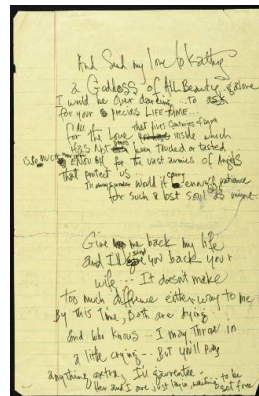 And Send my love to Kathy
a Goddess of All Beauty galore
I would be Over daring ... to ask
for your precious LIFE-TIME...
for the Love inside which
that lives Centuries of
HAS NOT been touched or tasted
enough for the vast armies of Angels
that protect us
In world it carry enough patience
for such a lost soul as mine
Give me back my life
and I'll send you back your
wife --- It doesn't make
too much difference either way to me
By this Time, Both are dying
and who knows... I may throw in
a little crying -- But you'll pay
anything extra, I'll guarantee -
Her and I are just layin, waiting to be
set free